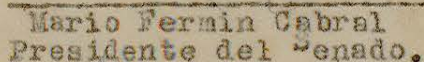 Mario Fermin Cabral
Presidente del Senado.